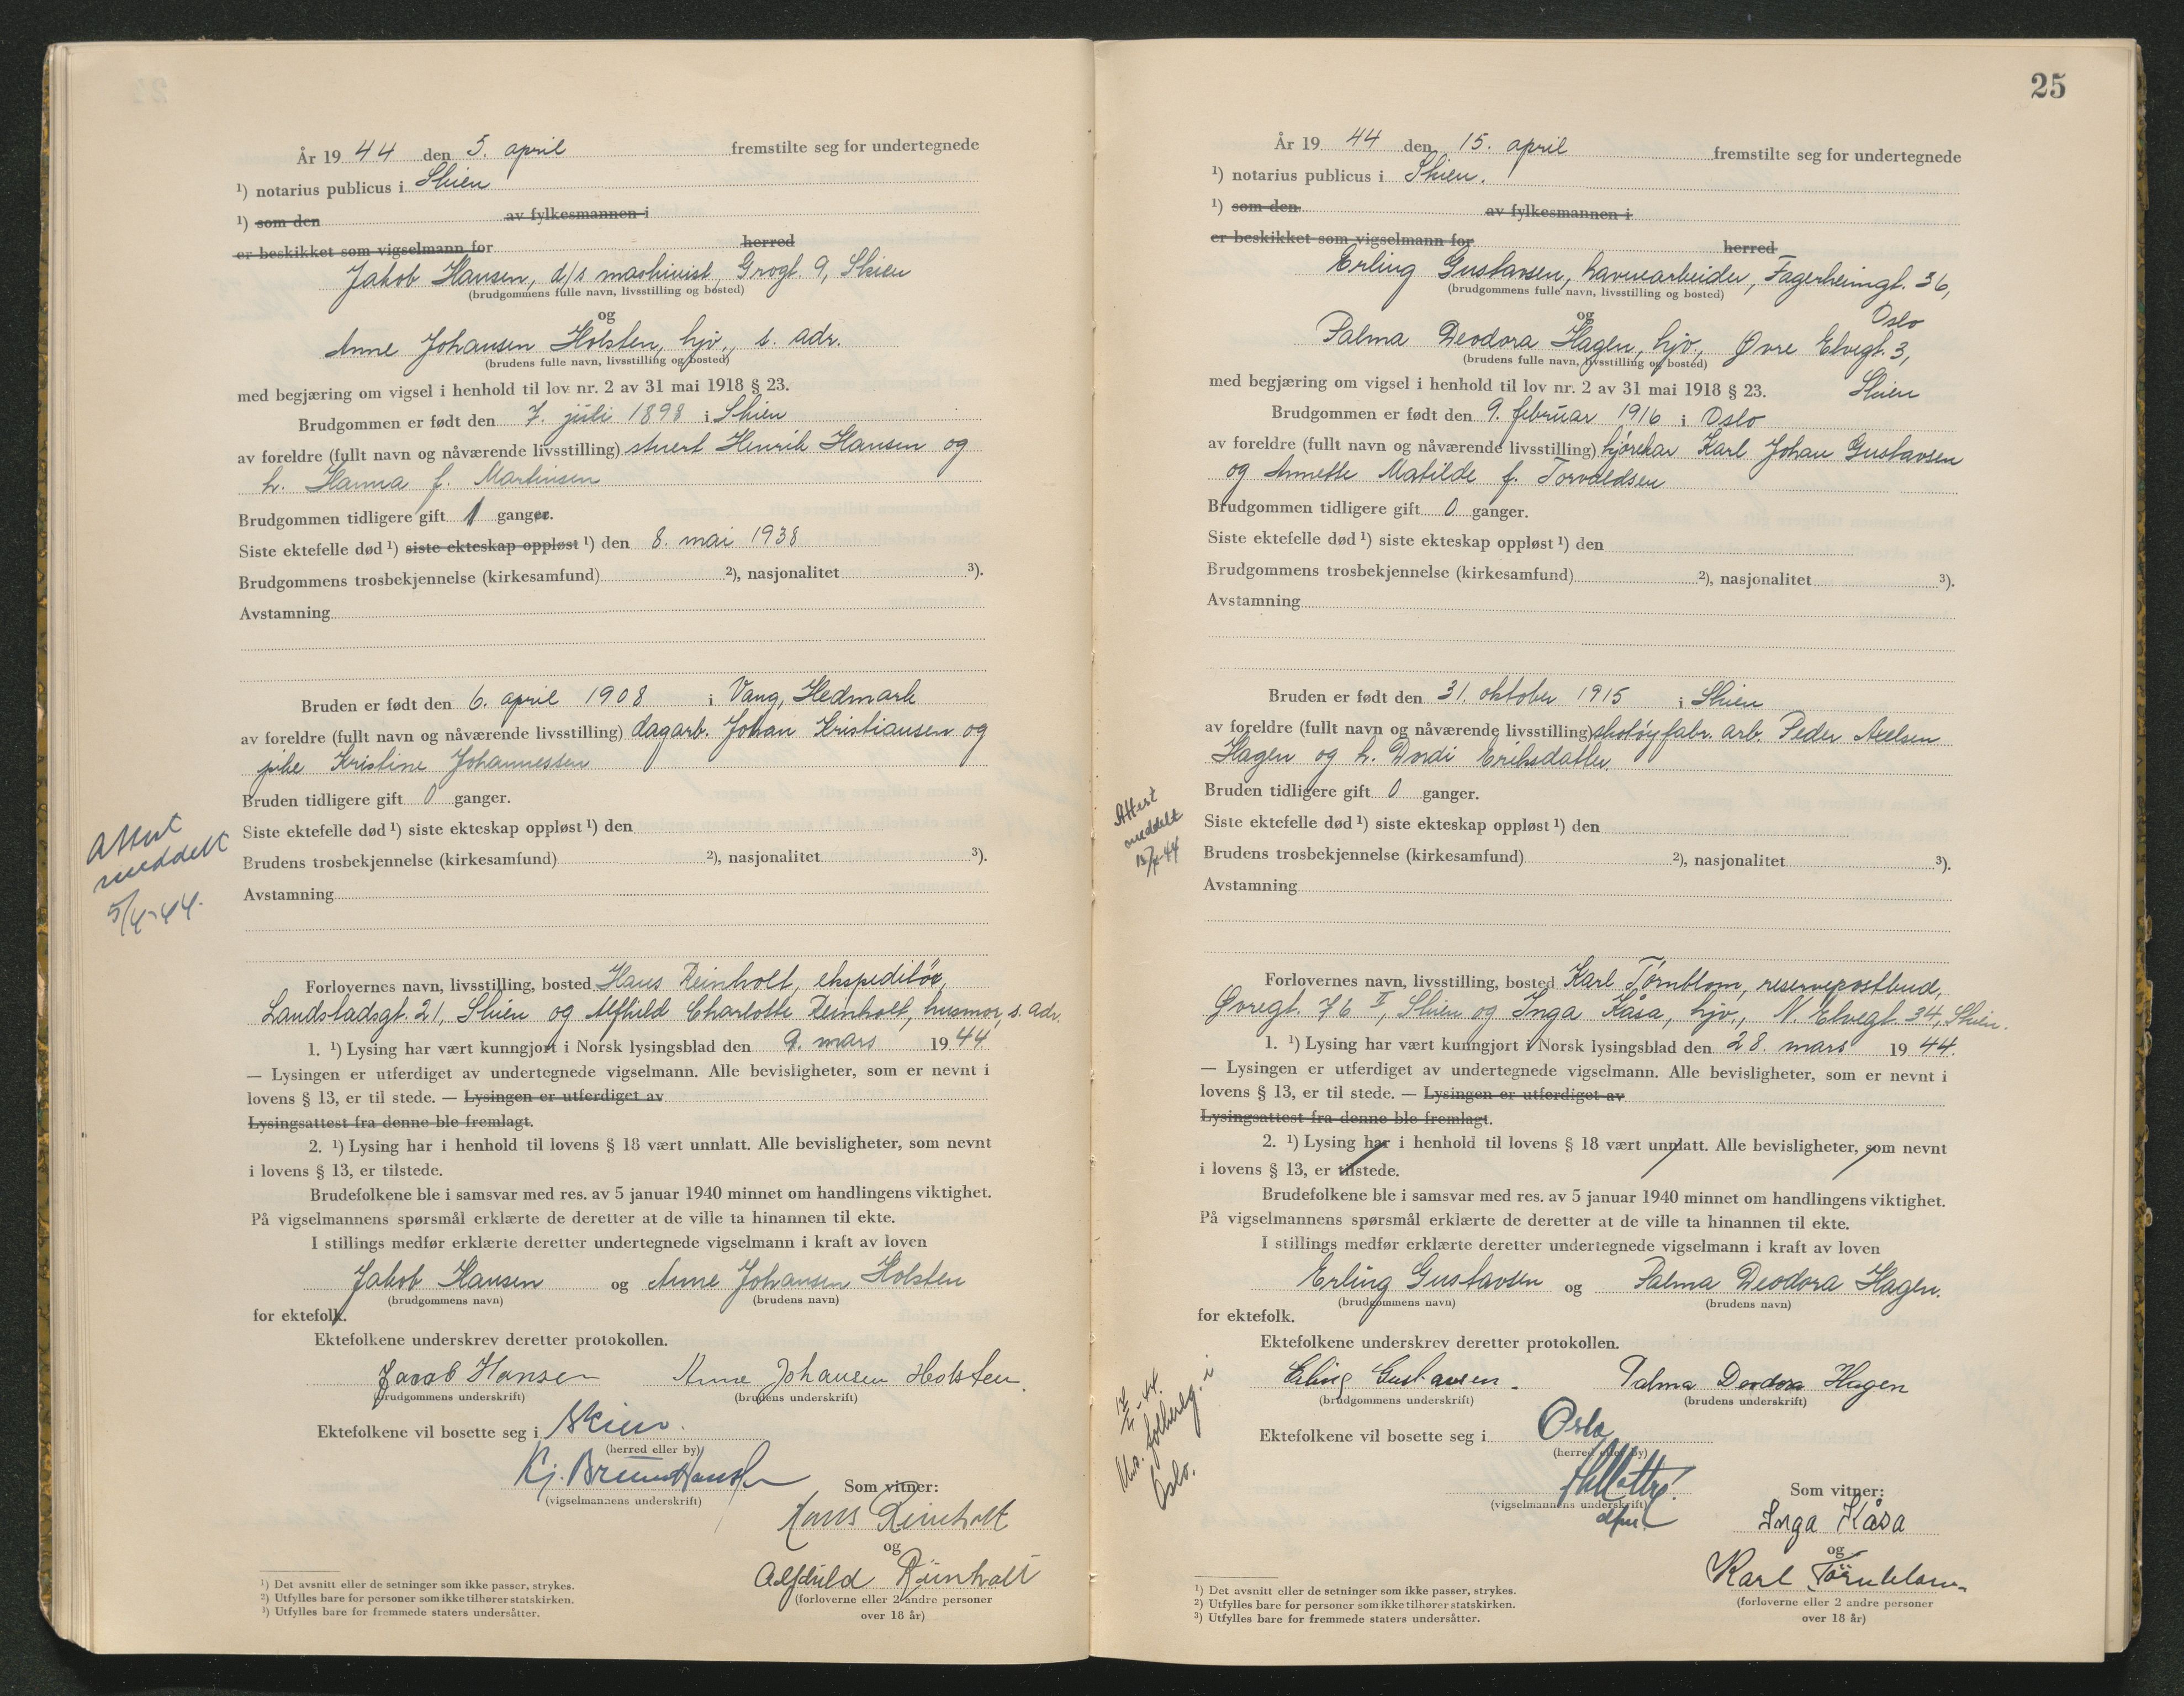 År 19 44 den 5. april fremstilte seg for undertegnede
¹) notarius publicus i Skien
¹) som den av fylkesmannen i
er beskikket som vigselmann for herred
Jakob Hansen, d/s maskinist, Grogt. 9, Skien
(brudgommens fulle navn, livsstilling og bosted)
og
Anne Johansen Holsten, hjv., s. adr.
(brudens fulle navn, livsstilling og bosted)
med begjæring om vigsel i henhold til lov nr. 2 av 31 mai 1918 § 23.
Brudgommen er født den 7. juli 1898 i Skien
av foreldre (fullt navn og nåværende livsstilling) stuert Henrik Hansen og
h. Hanna f. Martinsen
Brudgommen tidligere gift 1 ganger.
Siste ektefelle død ¹) siste ekteskap oppløst ¹) den 8. mai 1938
Brudgommens trosbekjennelse (kirkesamfund) ²), nasjonalitet ³).
Avstamning
Bruden er født den 6. april 1908 i Vang, Hedmark
av foreldre (fullt navn og nåværende livsstilling) dagarb. Johan Kristiansen og
pike Kristine Johannessen
Bruden tidligere gift 0 ganger.
Siste ektefelle død ¹) siste ekteskap oppløst ¹) den
Brudens trosbekjennelse (kirkesamfund) ²), nasjonalitet ³).
Avstamning
Attest
meddelt
5/4-44.
Forlovernes navn, livsstilling, bosted Hans Reinholt, ekspeditör,
Landstadsgt. 21, Skien og Alfhild Charlotte Reinholt, husmor, s. adr.
1. ¹) Lysing har vært kunngjort i Norsk lysingsblad den 9. mars 19 44
— Lysingen er utferdiget av undertegnede vigselmann. Alle bevisligheter, som er nevnt i
lovens § 13, er til stede. — Lysingen er utferdiget av
Lysingsattest fra denne ble fremlagt.
2. ¹) Lysing har i henhold til lovens § 18 vært unnlatt. Alle bevisligheter, som nevnt
i lovens § 13, er tilstede.
Brudefolkene ble i samsvar med res. av 5 januar 1940 minnet om handlingens viktighet.
På vigselmannens spørsmål erklærte de deretter at de ville ta hinannen til ekte.
I stillings medfør erklærte deretter undertegnede vigselmann i kraft av loven
Jakob Hansen og Anne Johansen Holsten
(brudgommens navn) (brudens navn)
for ektefolk.
Ektefolkene underskrev deretter protokollen.
Jacob Hansen Anne Johansen Holsten.
(brudgommens underskrift) (brudens underskrift)
Ektefolkene vil bosette seg i Skien.
(herred eller by)
Kj. Bruun Hansen
(vigselmannens underskrift)
Som vitner:
Hans Reinholt
og
Alfhild Reinholt
(forloverne eller 2 andre personer
over 18 år)
¹) Det avsnitt eller de setninger som ikke passer, strykes.
²) Utfylles bare for personer som ikke tilhører statskirken.
³) Utfylles bare for fremmede staters undersåtter.
25
År 19 44 den 15. april fremstilte seg for undertegnede
¹) notarius publicus i Skien.
¹) som den av fylkesmannen i
er beskikket som vigselmann for herred
Erling Gustavsen, havnearbeider, Fagerheimgt. 36,
(brudgommens fulle navn, livsstilling og bosted)
og Oslo
Palma Deodora Hagen, hjv., Øvre Elvegt. 3,
(brudens fulle navn, livsstilling og bosted)
med begjæring om vigsel i henhold til lov nr. 2 av 31 mai 1918 § 23. Skien
Brudgommen er født den 9. februar 1916 i Oslo
av foreldre (fullt navn og nåværende livsstilling) kjörekar Karl Johan Gustavsen
og Annette Matilde f. Torvaldsen
Brudgommen tidligere gift 0 ganger.
Siste ektefelle død ¹) siste ekteskap oppløst ¹) den
Brudgommens trosbekjennelse (kirkesamfund) ²), nasjonalitet ³).
Avstamning
Bruden er født den 31. oktober 1915 i Skien
av foreldre (fullt navn og nåværende livsstilling) skotöyfabr. arb. Peder Axelsen
Hagen og h. Dordi Eriksdatter.
Bruden tidligere gift 0 ganger.
Siste ektefelle død ¹) siste ekteskap oppløst ¹) den
Brudens trosbekjennelse (kirkesamfund) ²), nasjonalitet ³).
Avstamning
Attest
meddelt
15/4-44
Forlovernes navn, livsstilling, bosted Karl Törnblom, reservepostbud,
Øvregt. 76 II, Skien og Inga Kåsa, hjv., N. Elvegt. 34, Skien.
1. ¹) Lysing har vært kunngjort i Norsk lysingsblad den 28. mars 19 44.
— Lysingen er utferdiget av undertegnede vigselmann. Alle bevisligheter, som er nevnt i
lovens § 13, er til stede. — Lysingen er utferdiget av
Lysingsattest fra denne ble fremlagt.
2. ¹) Lysing har i henhold til lovens § 18 vært unnlatt. Alle bevisligheter, som nevnt
i lovens § 13, er tilstede.
Brudefolkene ble i samsvar med res. av 5 januar 1940 minnet om handlingens viktighet.
På vigselmannens spørsmål erklærte de deretter at de ville ta hinannen til ekte.
I stillings medfør erklærte deretter undertegnede vigselmann i kraft av loven
Erling Gustavsen og Palma Deodora Hagen.
(brudgommens navn) (brudens navn)
for ektefolk.
Ektefolkene underskrev deretter protokollen.
Erling Gustavsen. Palma Deodora Hagen
(brudgommens underskrift) (brudens underskrift)
Ektefolkene vil bosette seg i Oslo
(herred eller by)
(vigselmannens underskrift)
Oslo.
Som vitner:
Inga Kåsa
og
Karl Törnblom
(forloverne eller 2 andre personer
over 18 år)
¹) Det avsnitt eller de setninger som ikke passer, strykes.
²) Utfylles bare for personer som ikke tilhører statskirken.
³) Utfylles bare for fremmede staters undersåtter.